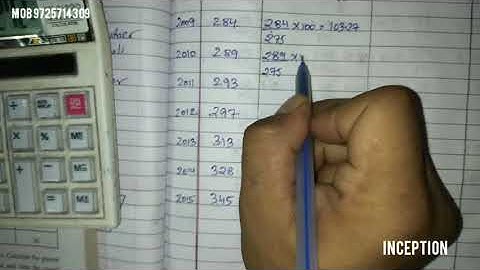 MOB9725714309
2009 284 284 × 100 = 103.27
275
2010 289 289 ×
275
2011 293
2012 297
2013 313
2014 328
2015 345
INCEPTION